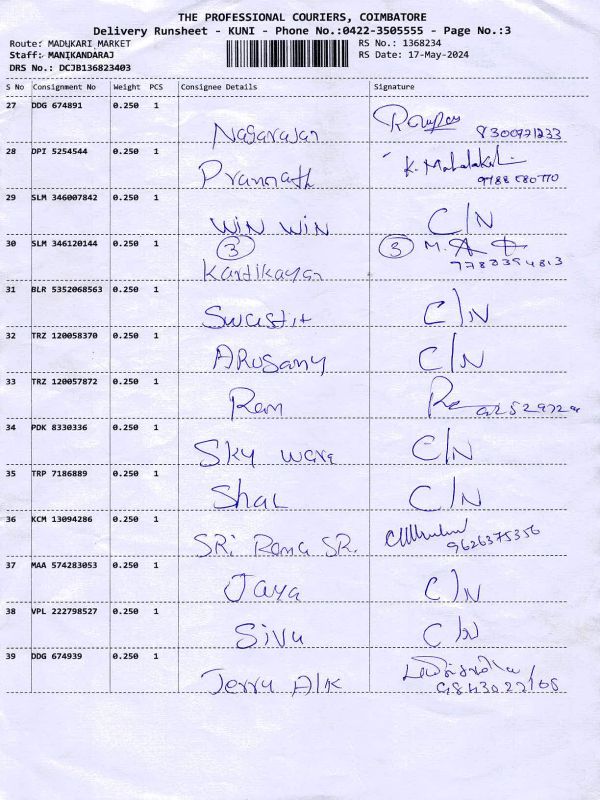 THE PROFESSIONAL COURIERS, COIMBATORE
Delivery Runsheet - KUNI - Phone No.:0422-3505555 - Page No.:3
Route: MADUKARI MARKET
RS No.: 1368234
Staff: MANIKANDARAJ
RS Date: 17-May-2024
DRS No.: DCJB136823403
S No Consignment No Weight PCS Consignee Details Signature
27 DDG 674891 0.250 1
Nagarajan 8300771233
28 DPI 5254544 0.250 1
Prannath K. Mahalakshmi
29 SLM 346007842 0.250 1
WIN WIN C/N
30 SLM 346120144 0.250 1 3 3 M.
Kartikayan 7783394813
31 BLR 5352068563 0.250 1
Swastit C/N
32 TRZ 120058370 0.250 1
ARusamy C/N
33 TRZ 120057872 0.250 1
Ram
34 PDK 8330336 0.250 1
Sky ware C/N
35 TRP 7186889 0.250 1
Shal C/N
36 KCM 13094286 0.250 1
SRi Rama SR. 9626375356
37 MAA 574283053 0.250 1
Jaya C/N
38 VPL 222798527 0.250 1
Siva C/N
39 DDG 674939 0.250 1
Jerry Alk